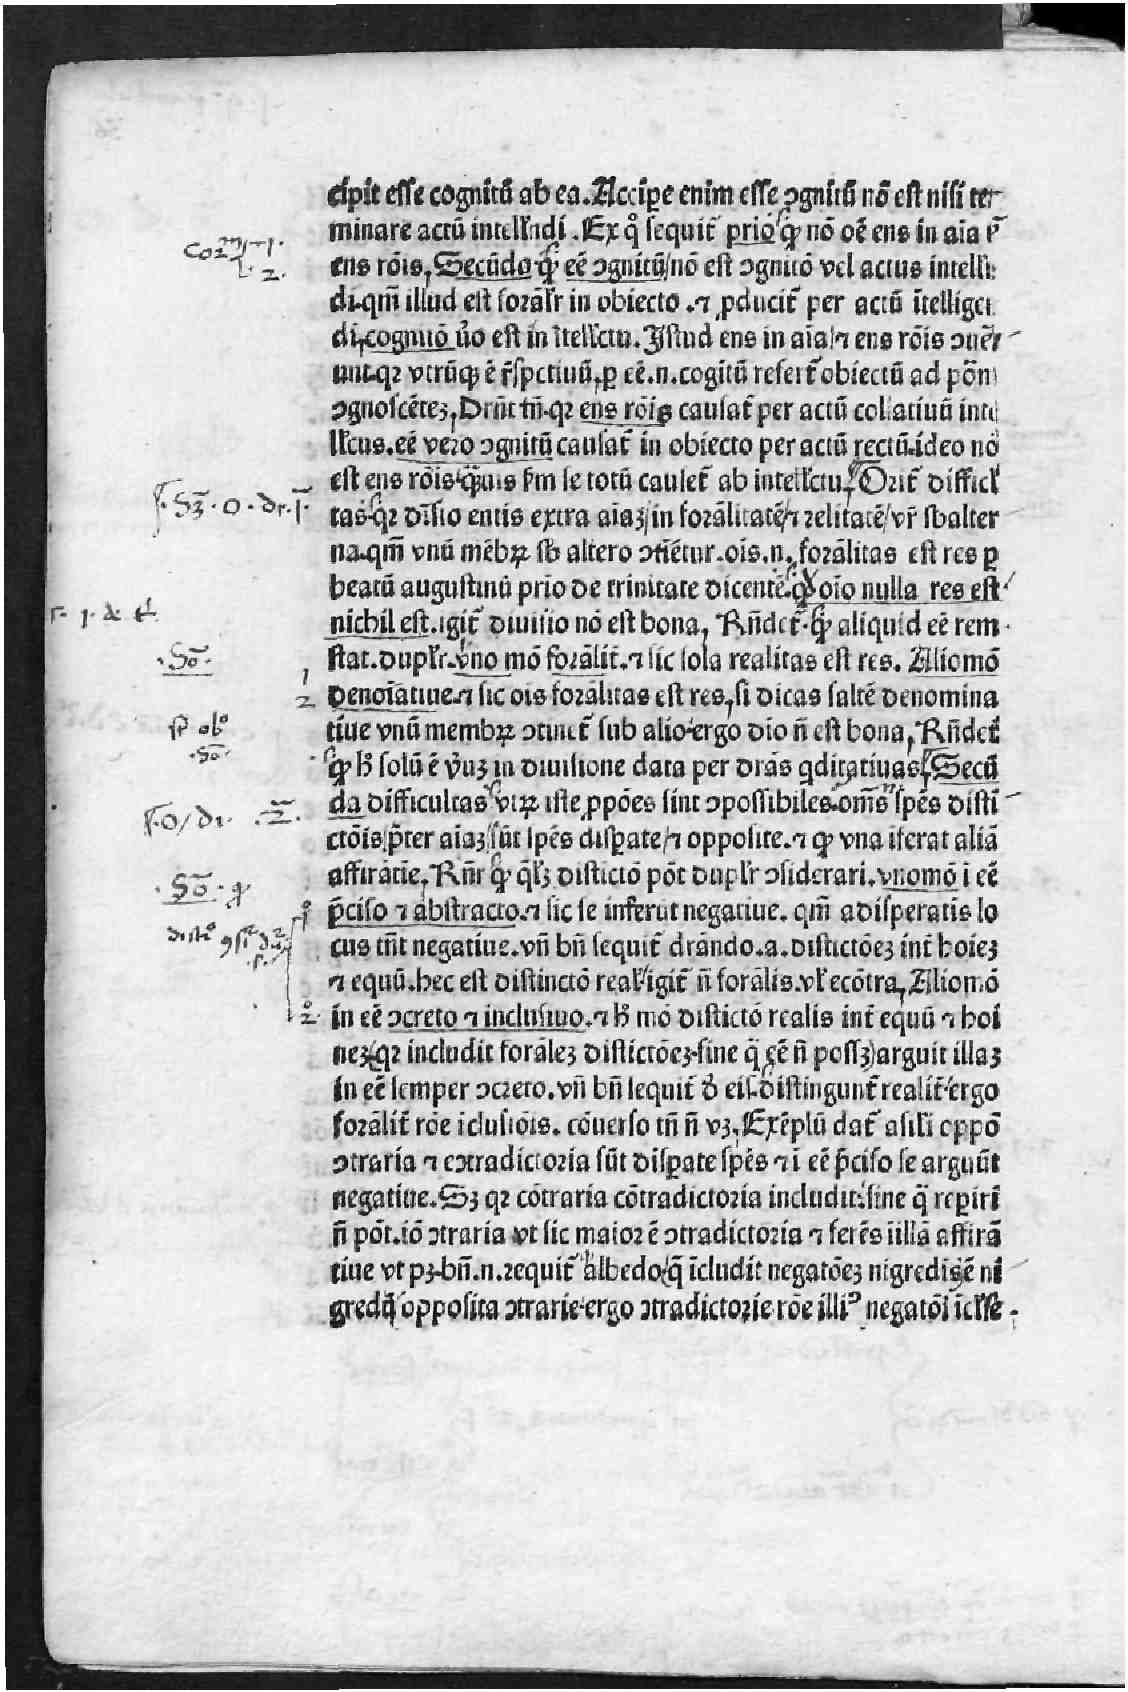 cipit esse cognitū ab ea. Accipe enim esse ɔgnitū nō est nisi ter-
minare actū intellꝰndi. Ex qͦ sequit᷑ prio ꝙ nō oē ens in aīa ē
ens rōis, Secūdo ꝙ eē ɔgnitū nō est ɔgnitō vel actus intelli-
di. qm̄ illud est forālr in obiecto. ⁊ ꝓducit᷑ per actū ītelligē
di, cognitō v̄o est in ītellꝰctu. Istud ens in aīa ⁊ ens rōis ɔuēr
unt. qꝛ vtrūqꝫ ē r̄spctiuū, ꝑ eē .n. cogitū refert᷑ obiectū ad pōn
ɔgnoscētez, Dr̄nt tn̄. qꝛ ens rōis causat᷑ per actū collatiuū inte
llꝰctus. eē vero ɔgnitū causat᷑ in obiecto per actū rectū. ideo nō
est ens rōis quis ſm se totū causet᷑ ab intellꝰctu, Orit᷑ difficl
tas. qꝛ diuisio entis extra aīaꝫ in forālitatē ⁊ relitatē vr̄ sbalter
na. qm̄ vnū mēbꝝ sb altero ɔtīetur. oīs .n. forālitas est res ꝑ
beatū augustinū prio de trinitate dicentē. ꝙ oīo nulla res est
nichil est. igit᷑ diuisio nō est bona, Rn̄det᷑. ꝙ aliquid eē rem
stat. duplr. vno mō forālit᷑. ⁊ sic sola realitas est res. Aliomō
denoīatiue. ⁊ sic oīs forālitas est res, si dicas saltē denomina
tiue vnū membꝝ ɔtinet᷑ sub alio. ergo dio n̄ est bona, Rn̄det᷑
ꝙ ꝉ solū ē v̄uꝫ in diuisione data per dr̄as qditatiuas, Secū
da difficultas vtꝝ iste ꝓpōes sint ɔpossibiles. om̄s spēs disti
ctōis p̄ter aīaꝫ sūt spēs disꝑate ⁊ opposite. ⁊ ꝙ vna iferat aliā
affirātīe, Rn̄r ꝙ qlꝫ distictō pōt duplr ɔsiderari. vnomō i eē
p̄ciso ⁊ abstracto. ⁊ sic se inferūt negatiue. qm̄ adisperatis lo
cus tn̄t negatiue. vn̄ bn̄ sequit᷑ drando. a. distictōeꝫ int᷑ hoīeꝫ
⁊ equū. hec est distinctō real igit᷑ n̄ forālis. vꝉ ecōtra, Aliomō
in eē ɔcreto ⁊ inclusiuo. ⁊ ꝉ mō distictō realis int᷑ equū ⁊ hoi
neꝫ qꝛ includit forāleꝫ distictōeꝫ. sine q̄ eē n̄ possꝫ arguit illaꝫ
in eē semper ɔcreto. vn̄ bn̄ sequit᷑ distingunt᷑ realit᷑. ergo
forālit᷑ rōe iclusiōis. cōuerso tn̄ n̄ vꝫ, Exēplū dat᷑ asili oppō
ɔtraria ⁊ cɔtradictoria sūt disꝑate spēs ⁊ i eē p̄ciso se arguūt
negatiue. Sꝫ qꝛ cōtraria cōtradictoria includūt. sine q̄ reꝑiri
n̄ pōt. iō ɔtraria vt sic maior ē ɔtradictoria ⁊ ferēs iillā affirā
tiue vt pꝫ. bn̄ .n. requit᷑ albedo q̄ īcludit negatōeꝫ nigredis ē ni
gredi opposita ɔtrarie. ergo ɔtradictorie rōe illiꝰ negatōi īclse